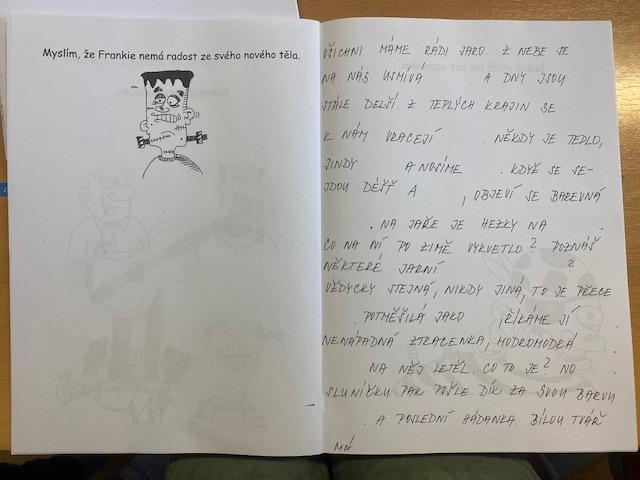 Myslím, že Frankie nemá radost ze svého nového těla.
VŠICHNI MÁME RÁDI JARO. Z NEBE SE
NA NÁS USMÍVÁ A DNY JSOU
STÁLE DELŠÍ. Z TEPLÝCH KRAJIN SE
K NÁM VRACEJÍ . NĚKDY JE TEPLO,
JINDY A NOSÍME . KDYŽ SE SE-
JDOU DÉŠŤ A , OBJEVÍ SE BAREVNÁ
. NA JAŘE JE HEZKY NA .
CO NA NÍ PO ZIMĚ VYKVETLO? POZNÁŠ
NĚKTERÉ JARNÍ ?
VŽDYCKY STEJNÁ, NIKDY JINÁ, TO JE PŘECE
. POTMĚŠILÁ JAKO , ŘÍKÁME JÍ
NENÁPADNÁ ZTRACENKA, MODROMODRÁ .
NA NĚJ LETĚL. CO TO JE? NO
SLUNÍČKU PAK POŠLE DÍK ZA SVOU BARVU
. A POSLEDNÍ HÁDANKA. BÍLOU TVÁŘ
MÁ